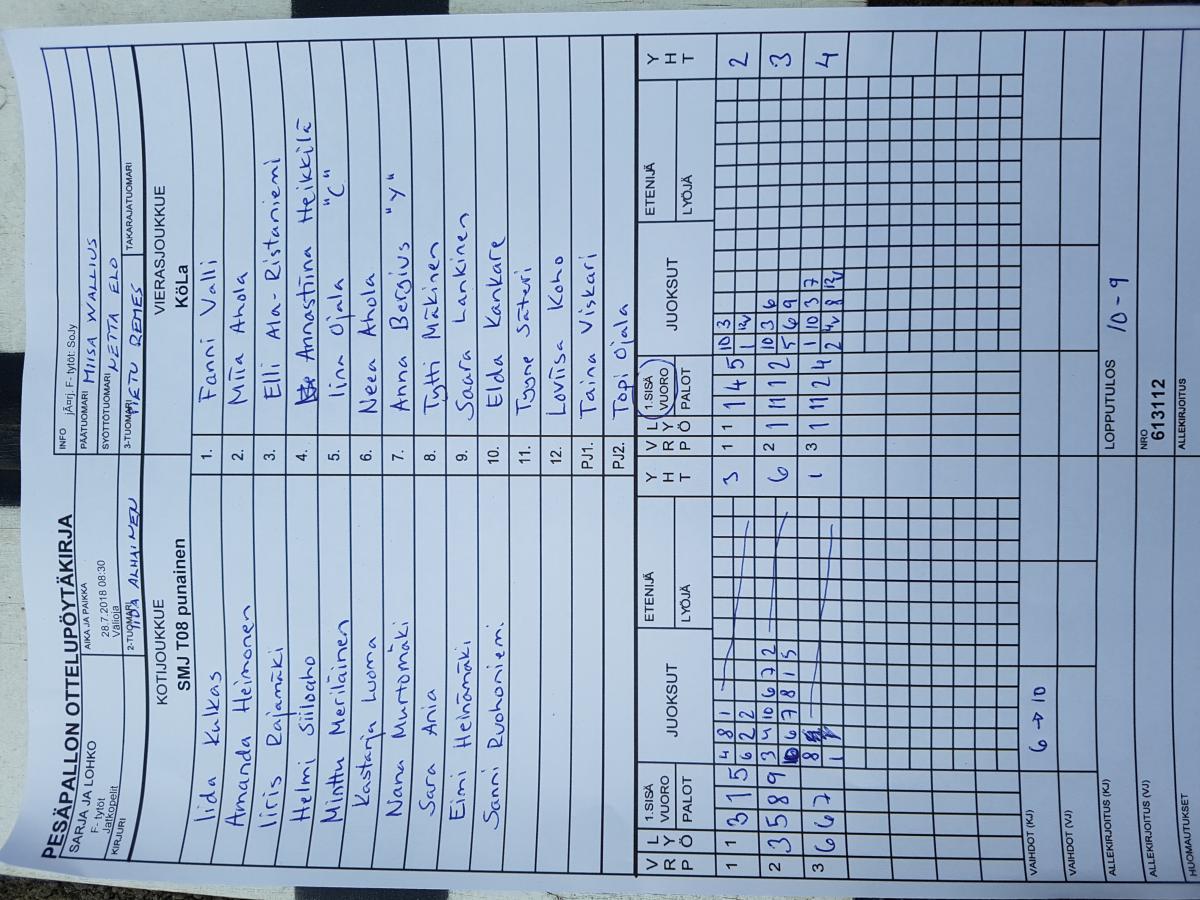 PESÄPALLON OTTELUPÖYTÄKIRJA
SARJA JA LOHKO
F- tytöt
Jatkopelit
KIRJURI
AIKA JA PAIKKA
28.7.2018 08:30
Välioja
2-TUOMARI
IIDA ALHAINEN
INFO jÃ¤rj. F- tytöt: SoJy
PÄÄTUOMARI MIISA WALLIUS
SYÖTTÖTUOMARI NETTA ELO
3-TUOMARI PIETU REMES
TAKARAJATUOMARI
KOTIJOUKKUE
SMJ T08 punainen
VIERASJOUKKUE
KöLa
Iida Kulkas 1. Fanni Valli
Amanda Heimonen 2. Miia Ahola
Iiris Rajamäki 3. Elli Ala-Ristaniemi
Helmi Siiloaho 4. Annastiina Heikkilä
Minttu Meriläinen 5. Iina Ojala "C"
Kastarja Luoma 6. Neea Ahola
Nana Murtomäki 7. Anna Bergius "Y"
Sara Ania 8. Tytti Mäkinen
Eimi Heinämäki 9. Saara Lankinen
Sanni Ruohoniemi 10. Elda Kankare
11. Tyyne Säteri
12. Loviisa Koho
PJ1. Taina Viskari
PJ2. Topi Ojala
VRP LYÖ 1.SISÄ VUORO PALOT JUOKSUT ETENIJÄ LYÖJÄ YHT
VRP LYÖ 1.SISÄ VUORO PALOT JUOKSUT ETENIJÄ LYÖJÄ YHT
1 1 3 1 5 4 8 1 3
6 2 2
1 1 1 4 5 10 3 2
1 12v
2 3 5 8 9 3 4 10 6 7 2 6
6 7 8 1 5
2 1 11 12 10 3 6 3
5 6 9
3 6 6 7 8 1
1
3 1 11 2 4 1 10 3 7 4
2 4v 8 12v
VAIHDOT (KJ) 6 → 10
VAIHDOT (VJ)
ALLEKIRJOITUS (KJ)
LOPPUTULOS 10 - 9
ALLEKIRJOITUS (VJ)
NRO
613112
HUOMAUTUKSET
ALLEKIRJOITUS